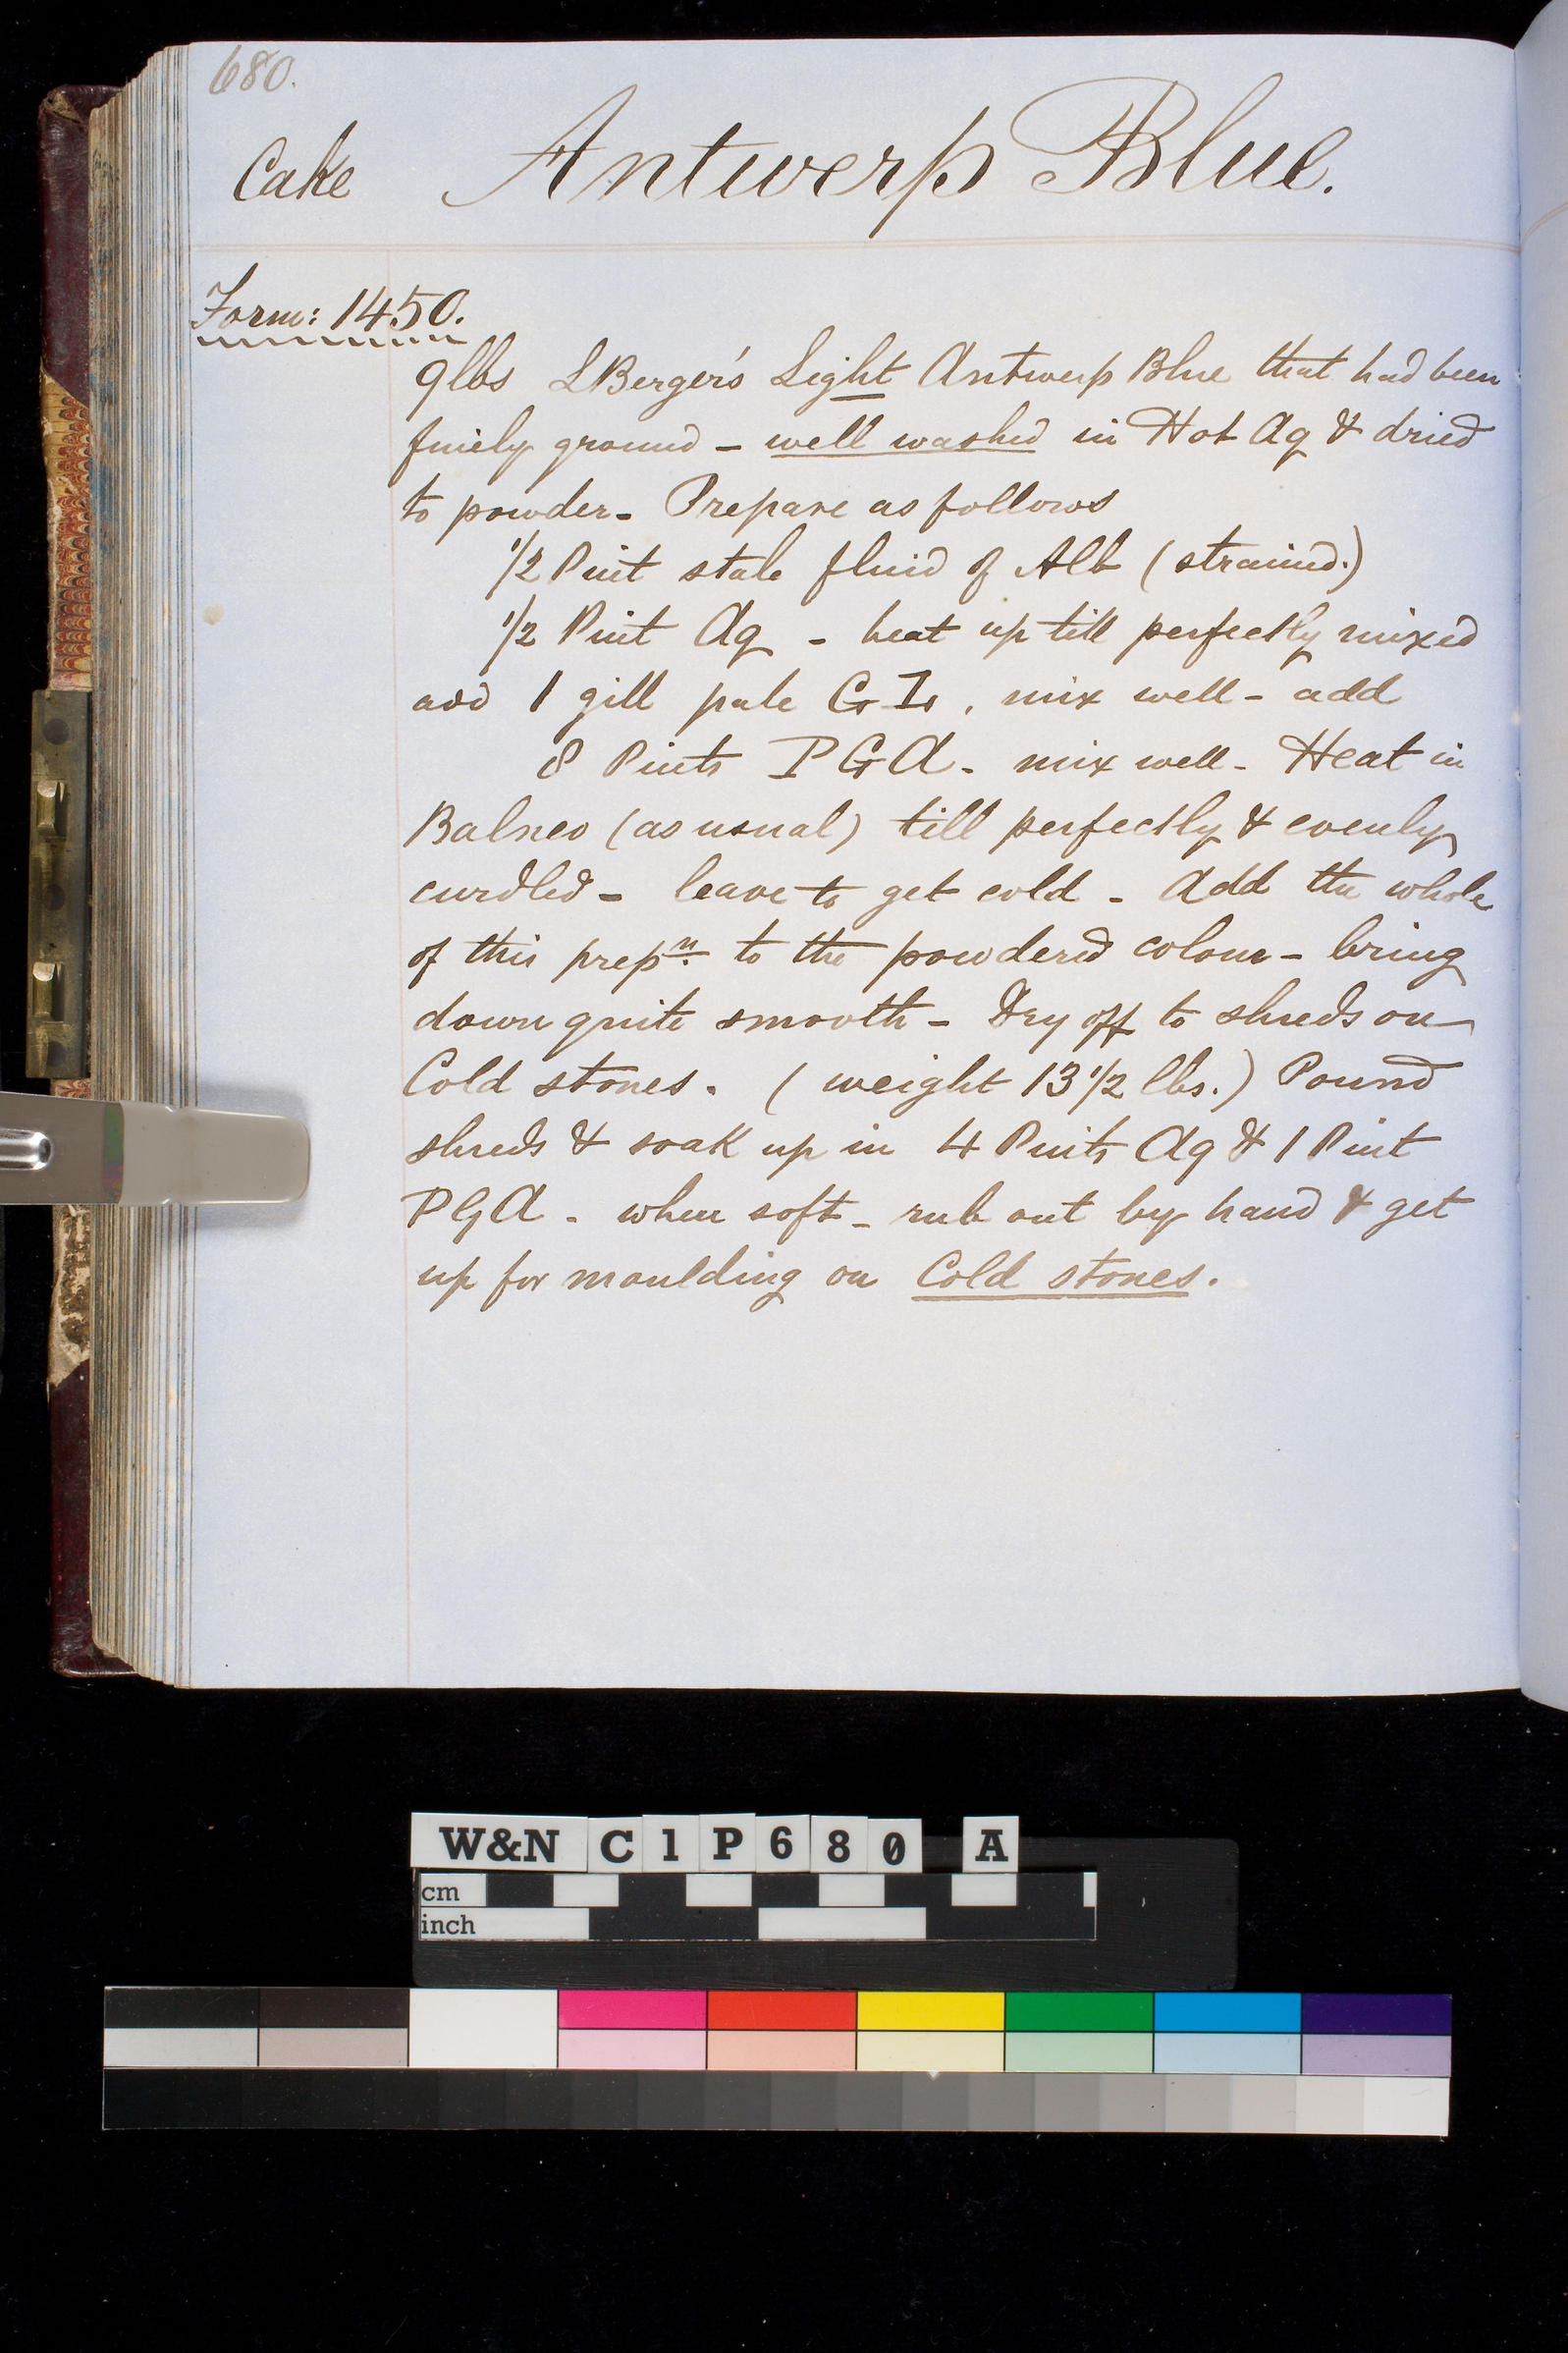 680.
Cake Antwerp Blue.
Form: 1450.
9lbs LBerger's Light Antwerp Blue that had been
finely ground - well washed in Hot Aq & dried
to powder - Prepare as follows
1/2 Pint stale fluid of Alb (strained.)
1/2 Pint Aq - heat up till perfectly mixed
add 1 gill pale GL, mix well - add
8 Pints PGA - mix well - Heat in
Balneo (as usual) till perfectly & evenly
curdled - leave to get cold - Add the whole
of this prepn. to the powdered colour - bring
down quite smooth - Dry off to shreds on
Cold stones. (weight 13 1/2 lbs.) Pound
shreds & soak up in 4 Pints Aq & 1 Pint
PGA - when soft - rub out by hand & get
up for moulding on Cold stones.
W&N C1P680 A
cm
inch